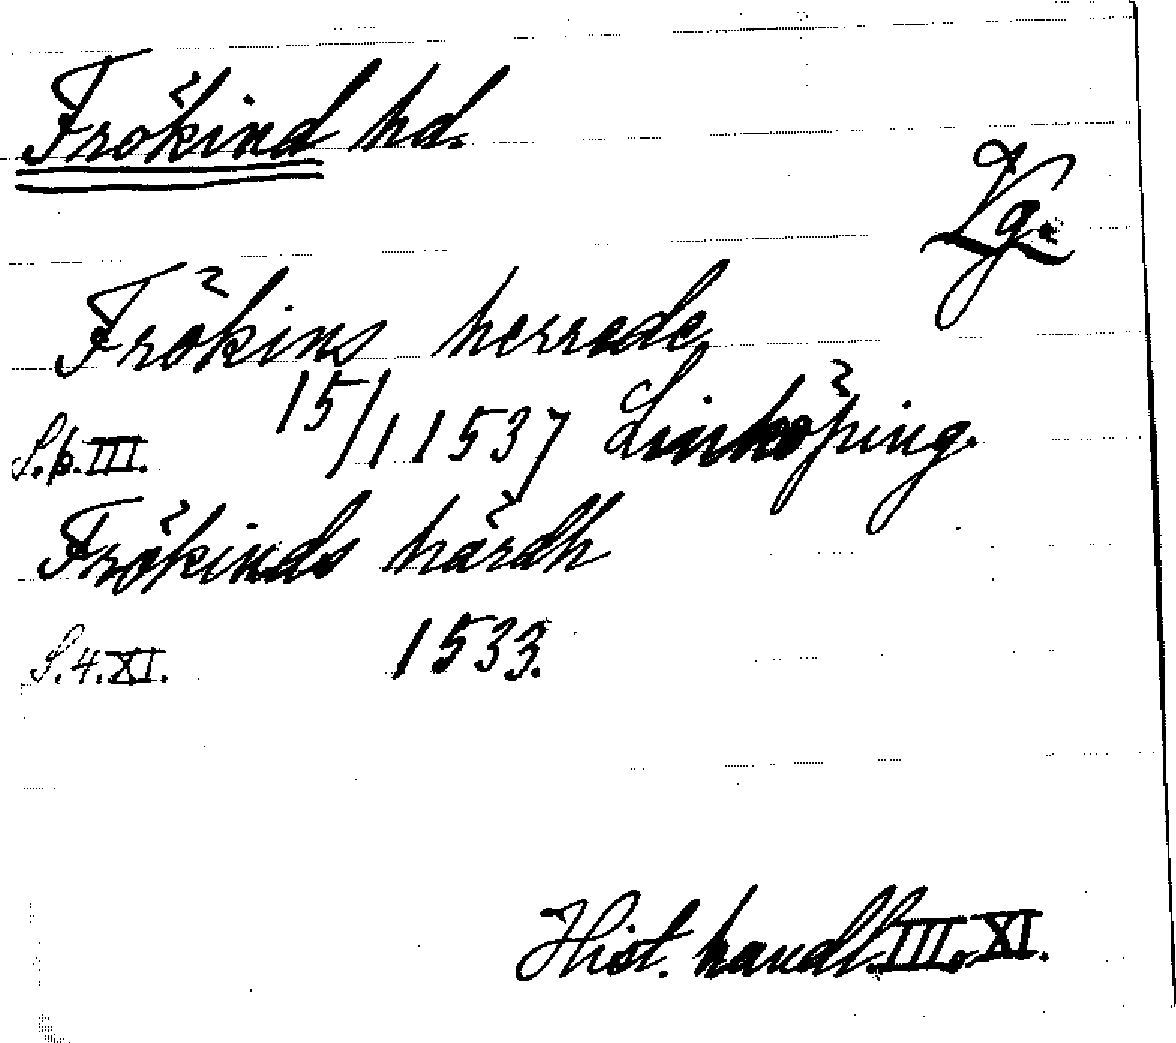 Frökind hd.
Vg.
Frökins herrade
S. p. III. 15/1 1537 Linköping.
Frökinds härdh
S. 4. XI. 1533.
Hist. handl. III, XI.